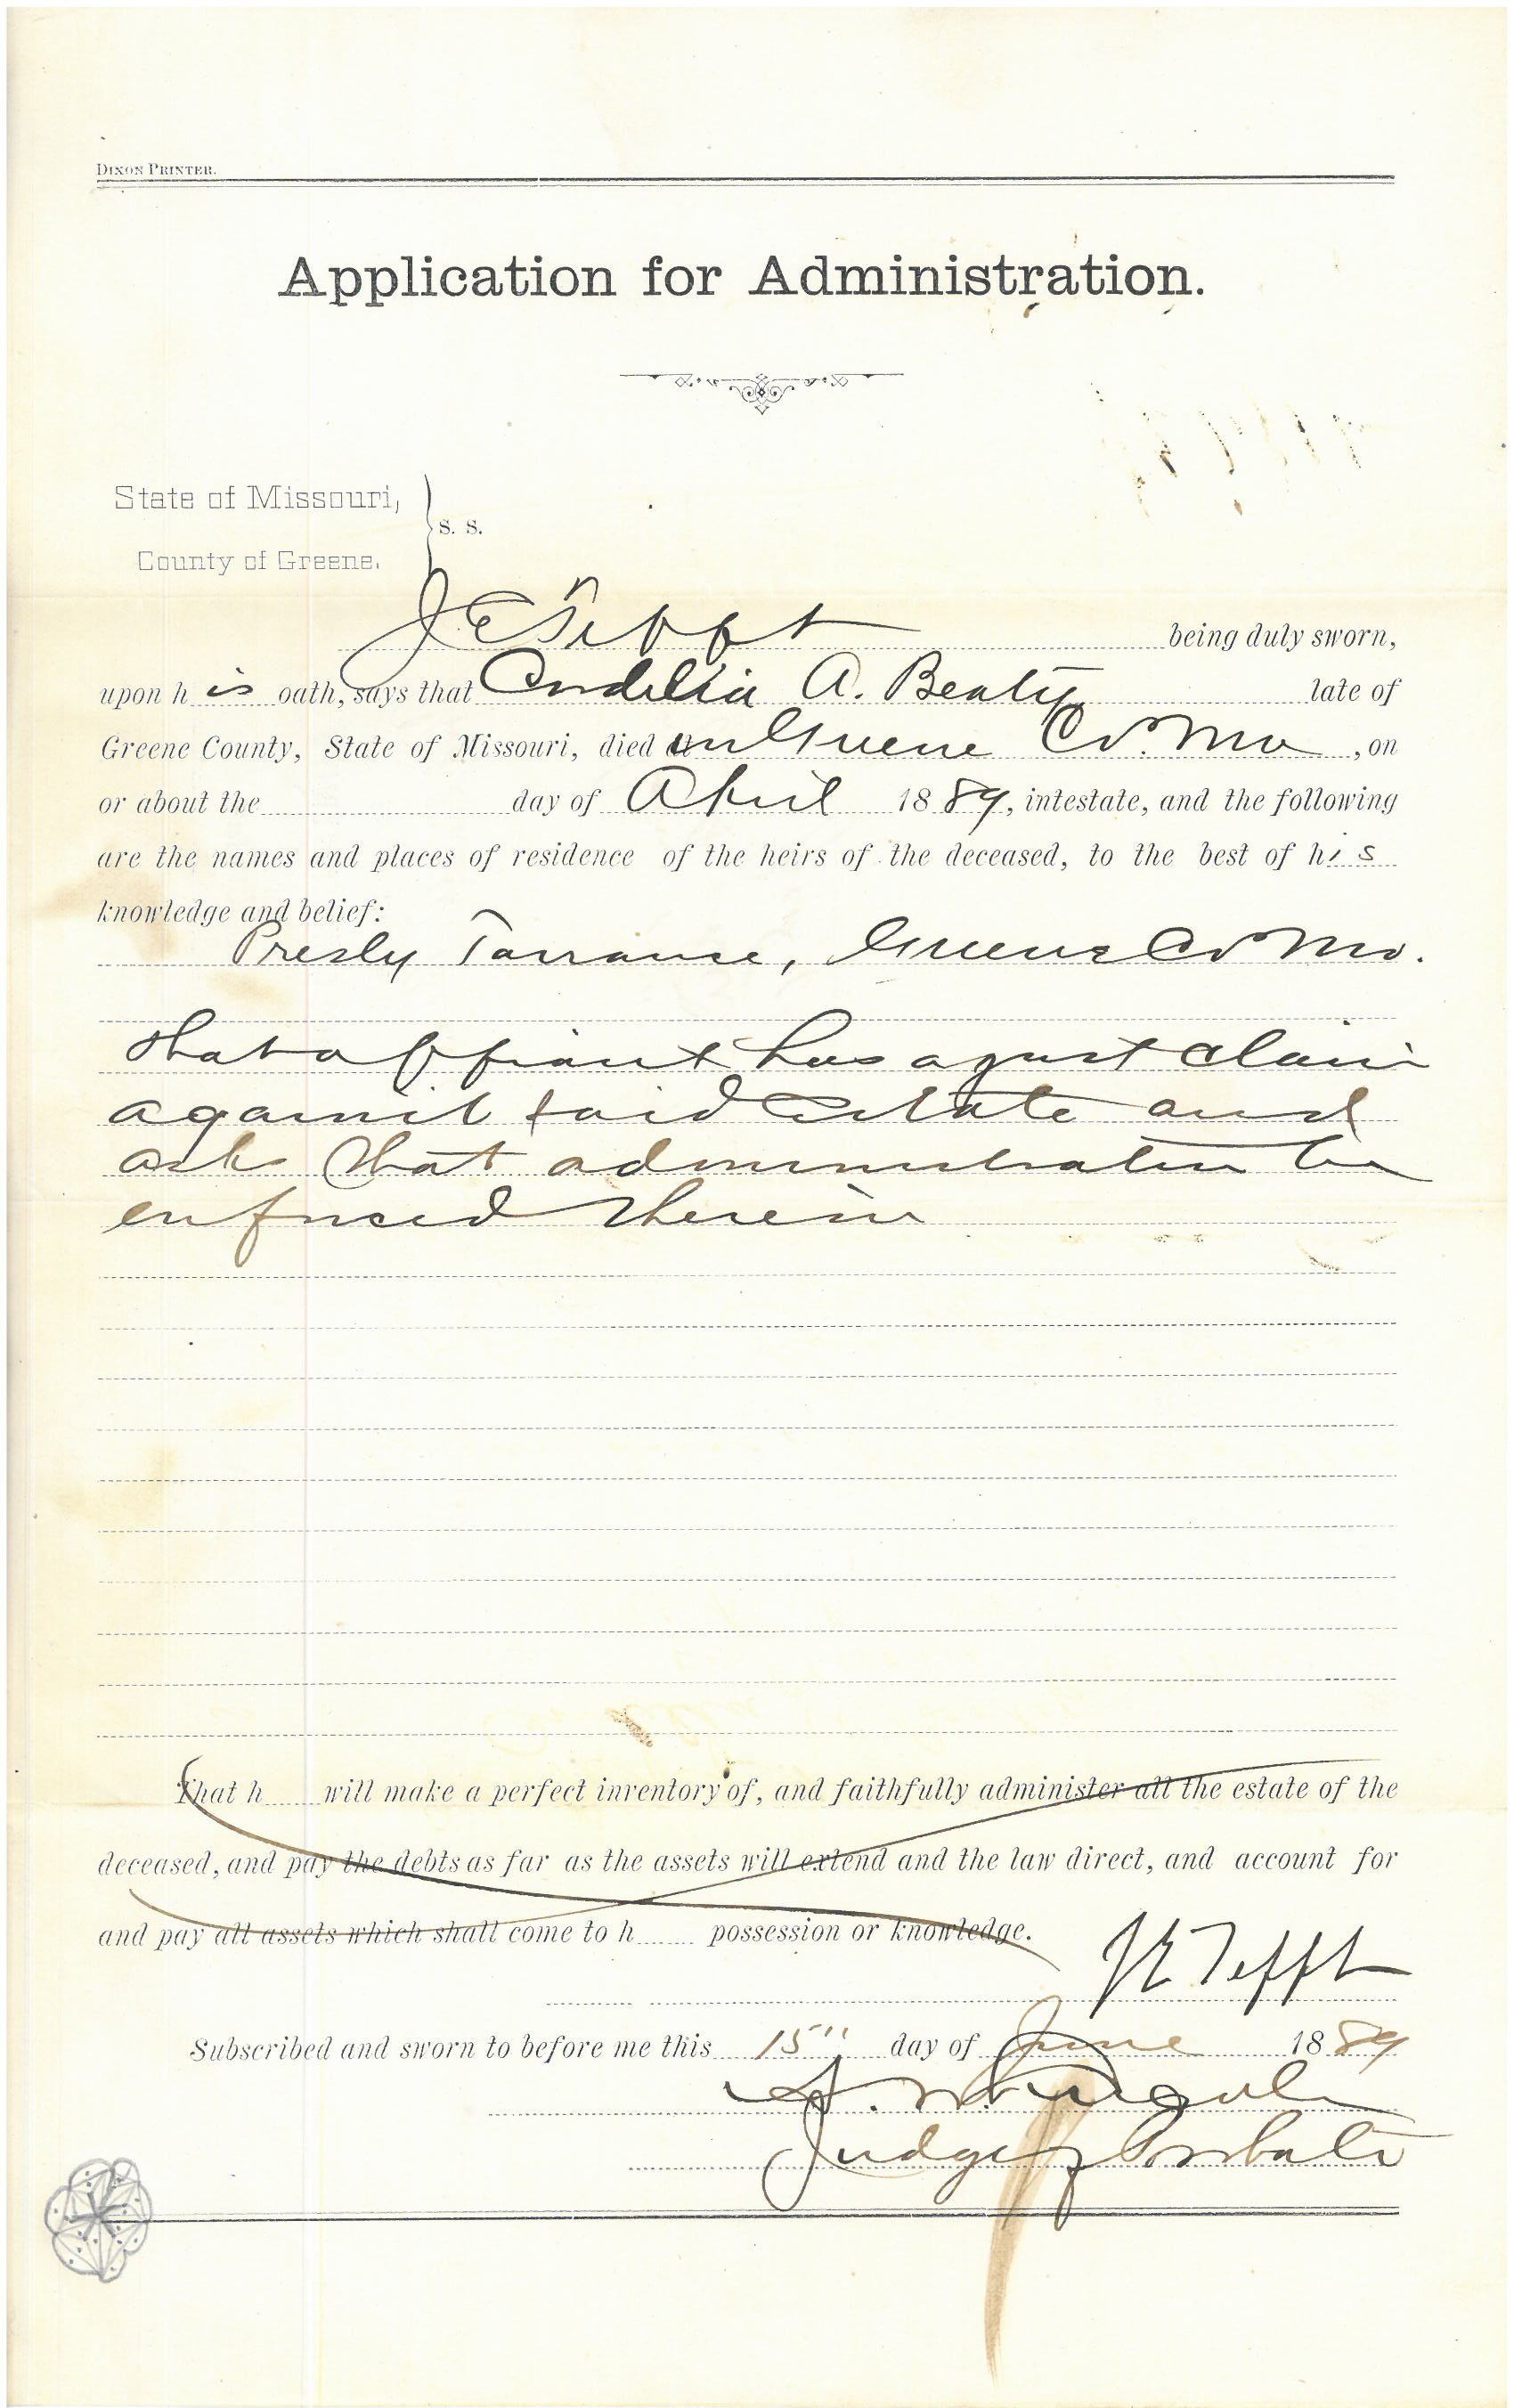 DIXON PRINTER.
Application for Administration.
State of Missouri,
S. S.
County of Greene.
J E Tefft being duly sworn,
upon his oath, says that Cordelia A. Beaty late of
Greene County, State of Missouri, died in Greene Co. Mo, on
or about the day of April 1889, intestate, and the following
are the names and places of residence of the heirs of the deceased, to the best of his
knowledge and belief:
Presly Torrance, Greene Co Mo.
that affiant has a just claim
against said Estate and
ask that administration be
enforced therein
That h will make a perfect inventory of, and faithfully administer all the estate of the
deceased, and pay the debts as far as the assets will extend and the law direct, and account for
and pay all assets which shall come to h possession or knowledge.
J E Tefft
Subscribed and sworn to before me this 15" day of June 1889
Judge of Probate